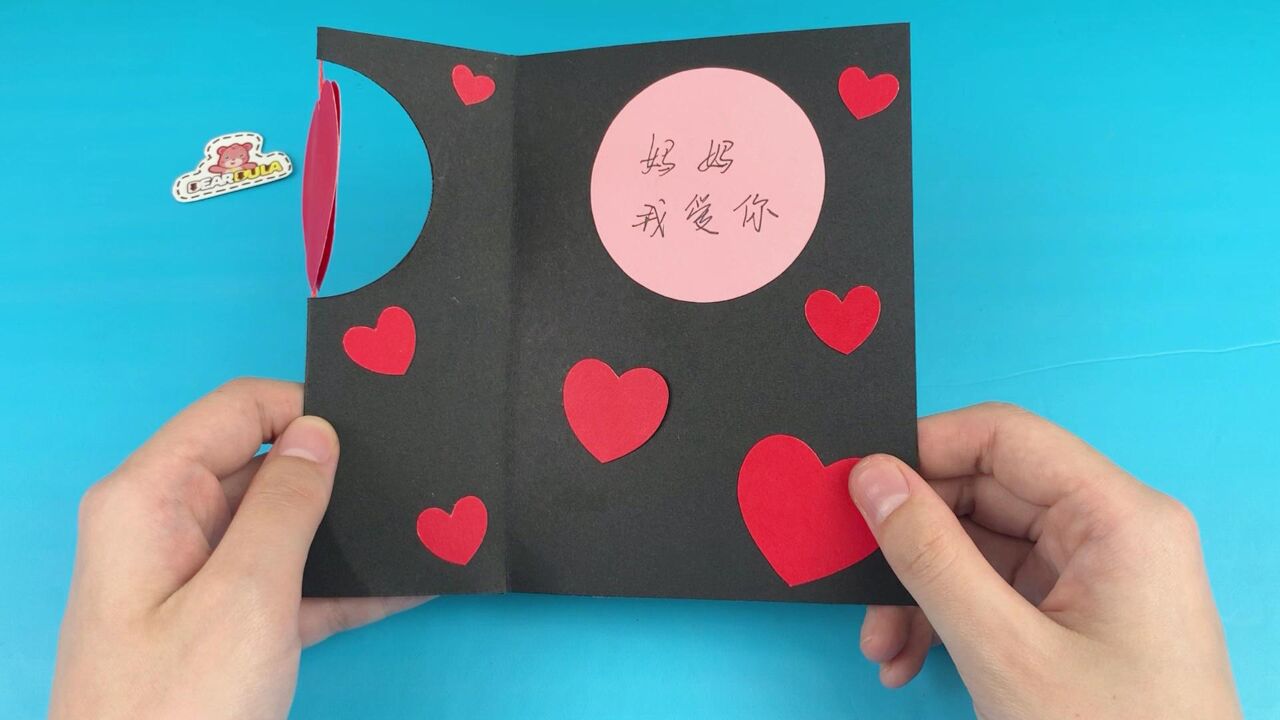 BEARDULA
妈妈
我爱你